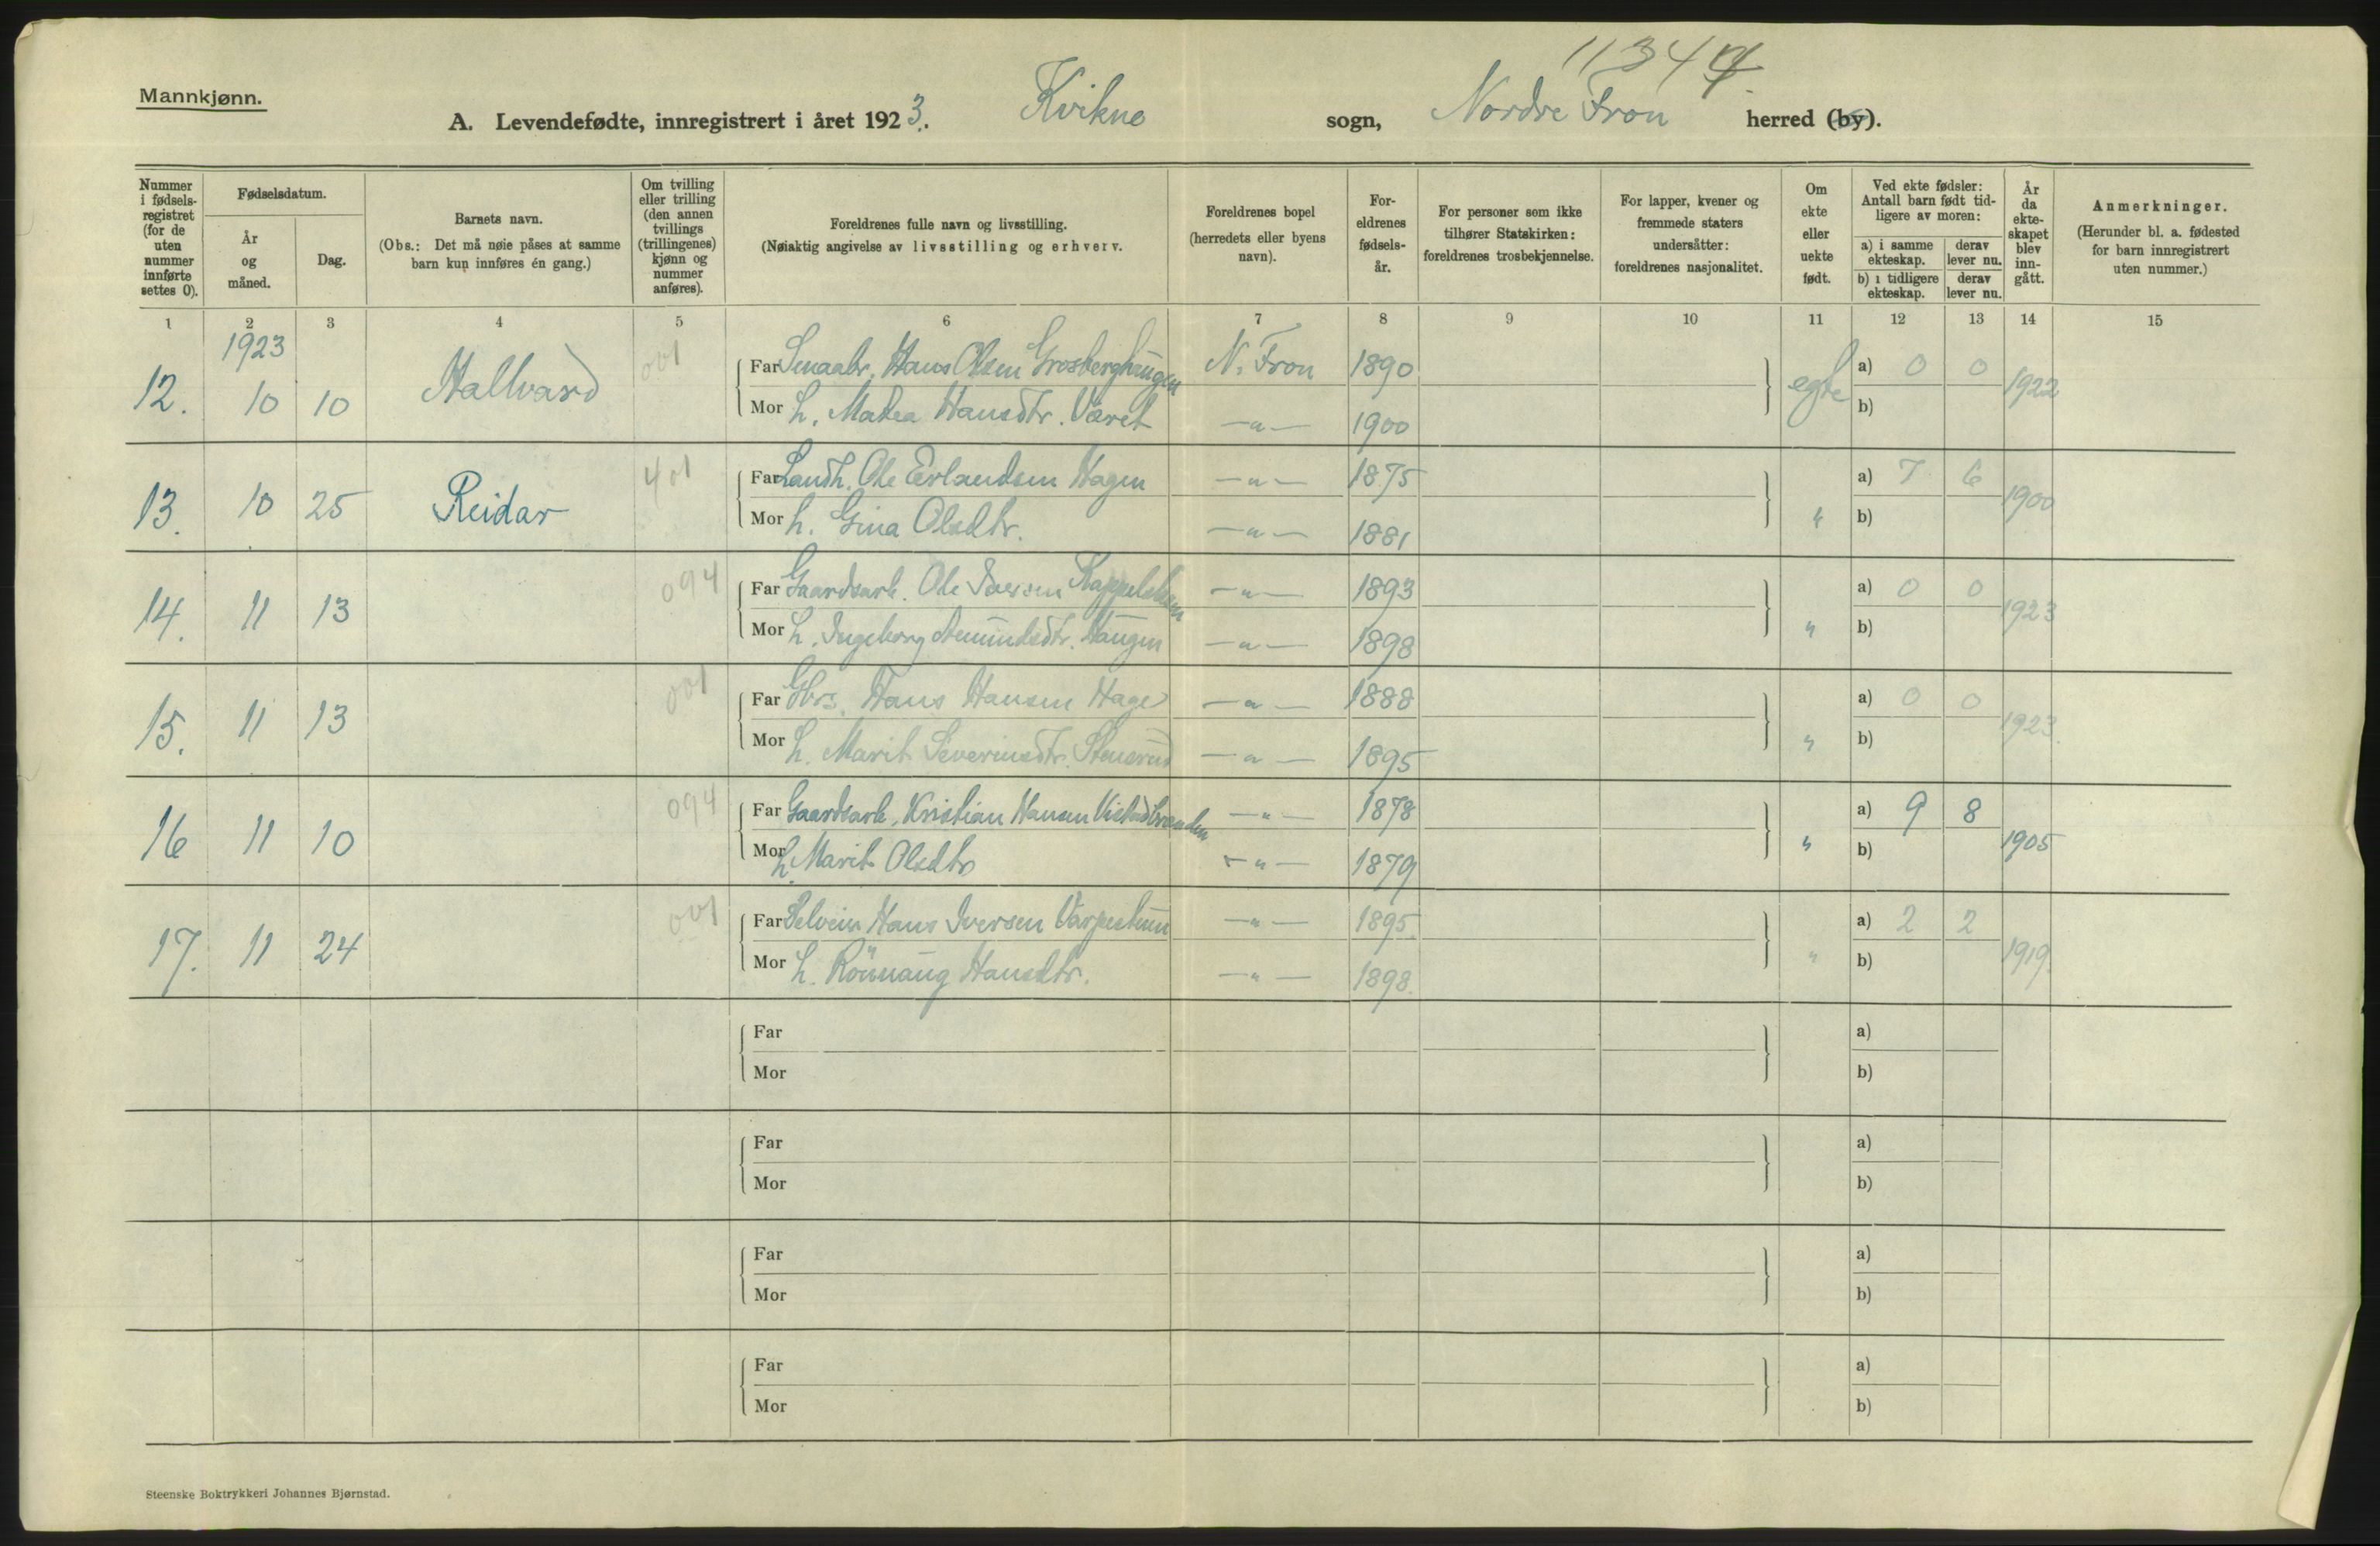 11344
Mannkjønn.
A. Levendefødte, innregistrert i året 1923. Kvikne sogn, Nordre Fron herred (by).
Nummer i fødsels-registret (for de uten nummer innførte settes 0).
Fødselsdatum.
År og måned.
Dag.
Barnets navn.
(Obs.: Det må nøie påses at samme barn kun innføres én gang.)
Om tvilling eller trilling (den annen tvillings (trillingenes) kjønn og nummer anføres).
Foreldrenes fulle navn og livsstilling.
(Nøiaktig angivelse av livsstilling og erhverv.
Foreldrenes bopel (herredets eller byens navn).
For-eldrenes fødsels-år.
For personer som ikke tilhører Statskirken: foreldrenes trosbekjennelse.
For lapper, kvener og fremmede staters undersåtter: foreldrenes nasjonalitet.
Om ekte eller uekte født.
Ved ekte fødsler: Antall barn født tid-ligere av moren:
a) i samme ekteskap.
derav lever nu.
b) i tidligere ekteskap.
derav lever nu.
År da ekte-skapet blev inn-gått.
Anmerkninger.
(Herunder bl. a. fødested for barn innregistrert uten nummer.)
1 2 3 4 5 6 7 8 9 10 11 12 13 14 15
1923
12. 10 10 Hallvard 001 Far Smaabr. Hans Olsen Grosberghaugen N. Fron 1890 egte a) 0 0 1922
Mor h. Mathea Hansdtr. Været —"— 1900 b)
13. 10 25 Reidar 401 Far Landh. Ole Erlandsen Hagen —"— 1875 " a) 7 6 1900
Mor h. Gina Olsdtr. —"— 1881 b)
14. 11 13 094 Far Gaardsarb. Ole Iversen —"— 1893 " a) 0 0 1923
Mor h. Ingeborg Amundsdtr. Haugen —"— 1898 b)
15. 11 13 001 Far Gbr. Hans Hansen Hage —"— 1888 " a) 0 0 1923.
Mor h. Marit Severinsdtr. Stensrud —"— 1895 b)
16 11 10 094 Far Gaardsarb. Kristian Hansen —"— 1878 " a) 9 8 1905
Mor h. Marit Olsdtr —"— 1879 b)
17. 11 24 001 Far Selveier Hans Iversen —"— 1895. " a) 2 2 1919.
Mor h. Rönnaug Hansdtr. —"— 1898. b)
Far a)
Mor b)
Far a)
Mor b)
Far a)
Mor b)
Far a)
Mor b)
Steenske Boktrykkeri Johannes Bjørnstad.